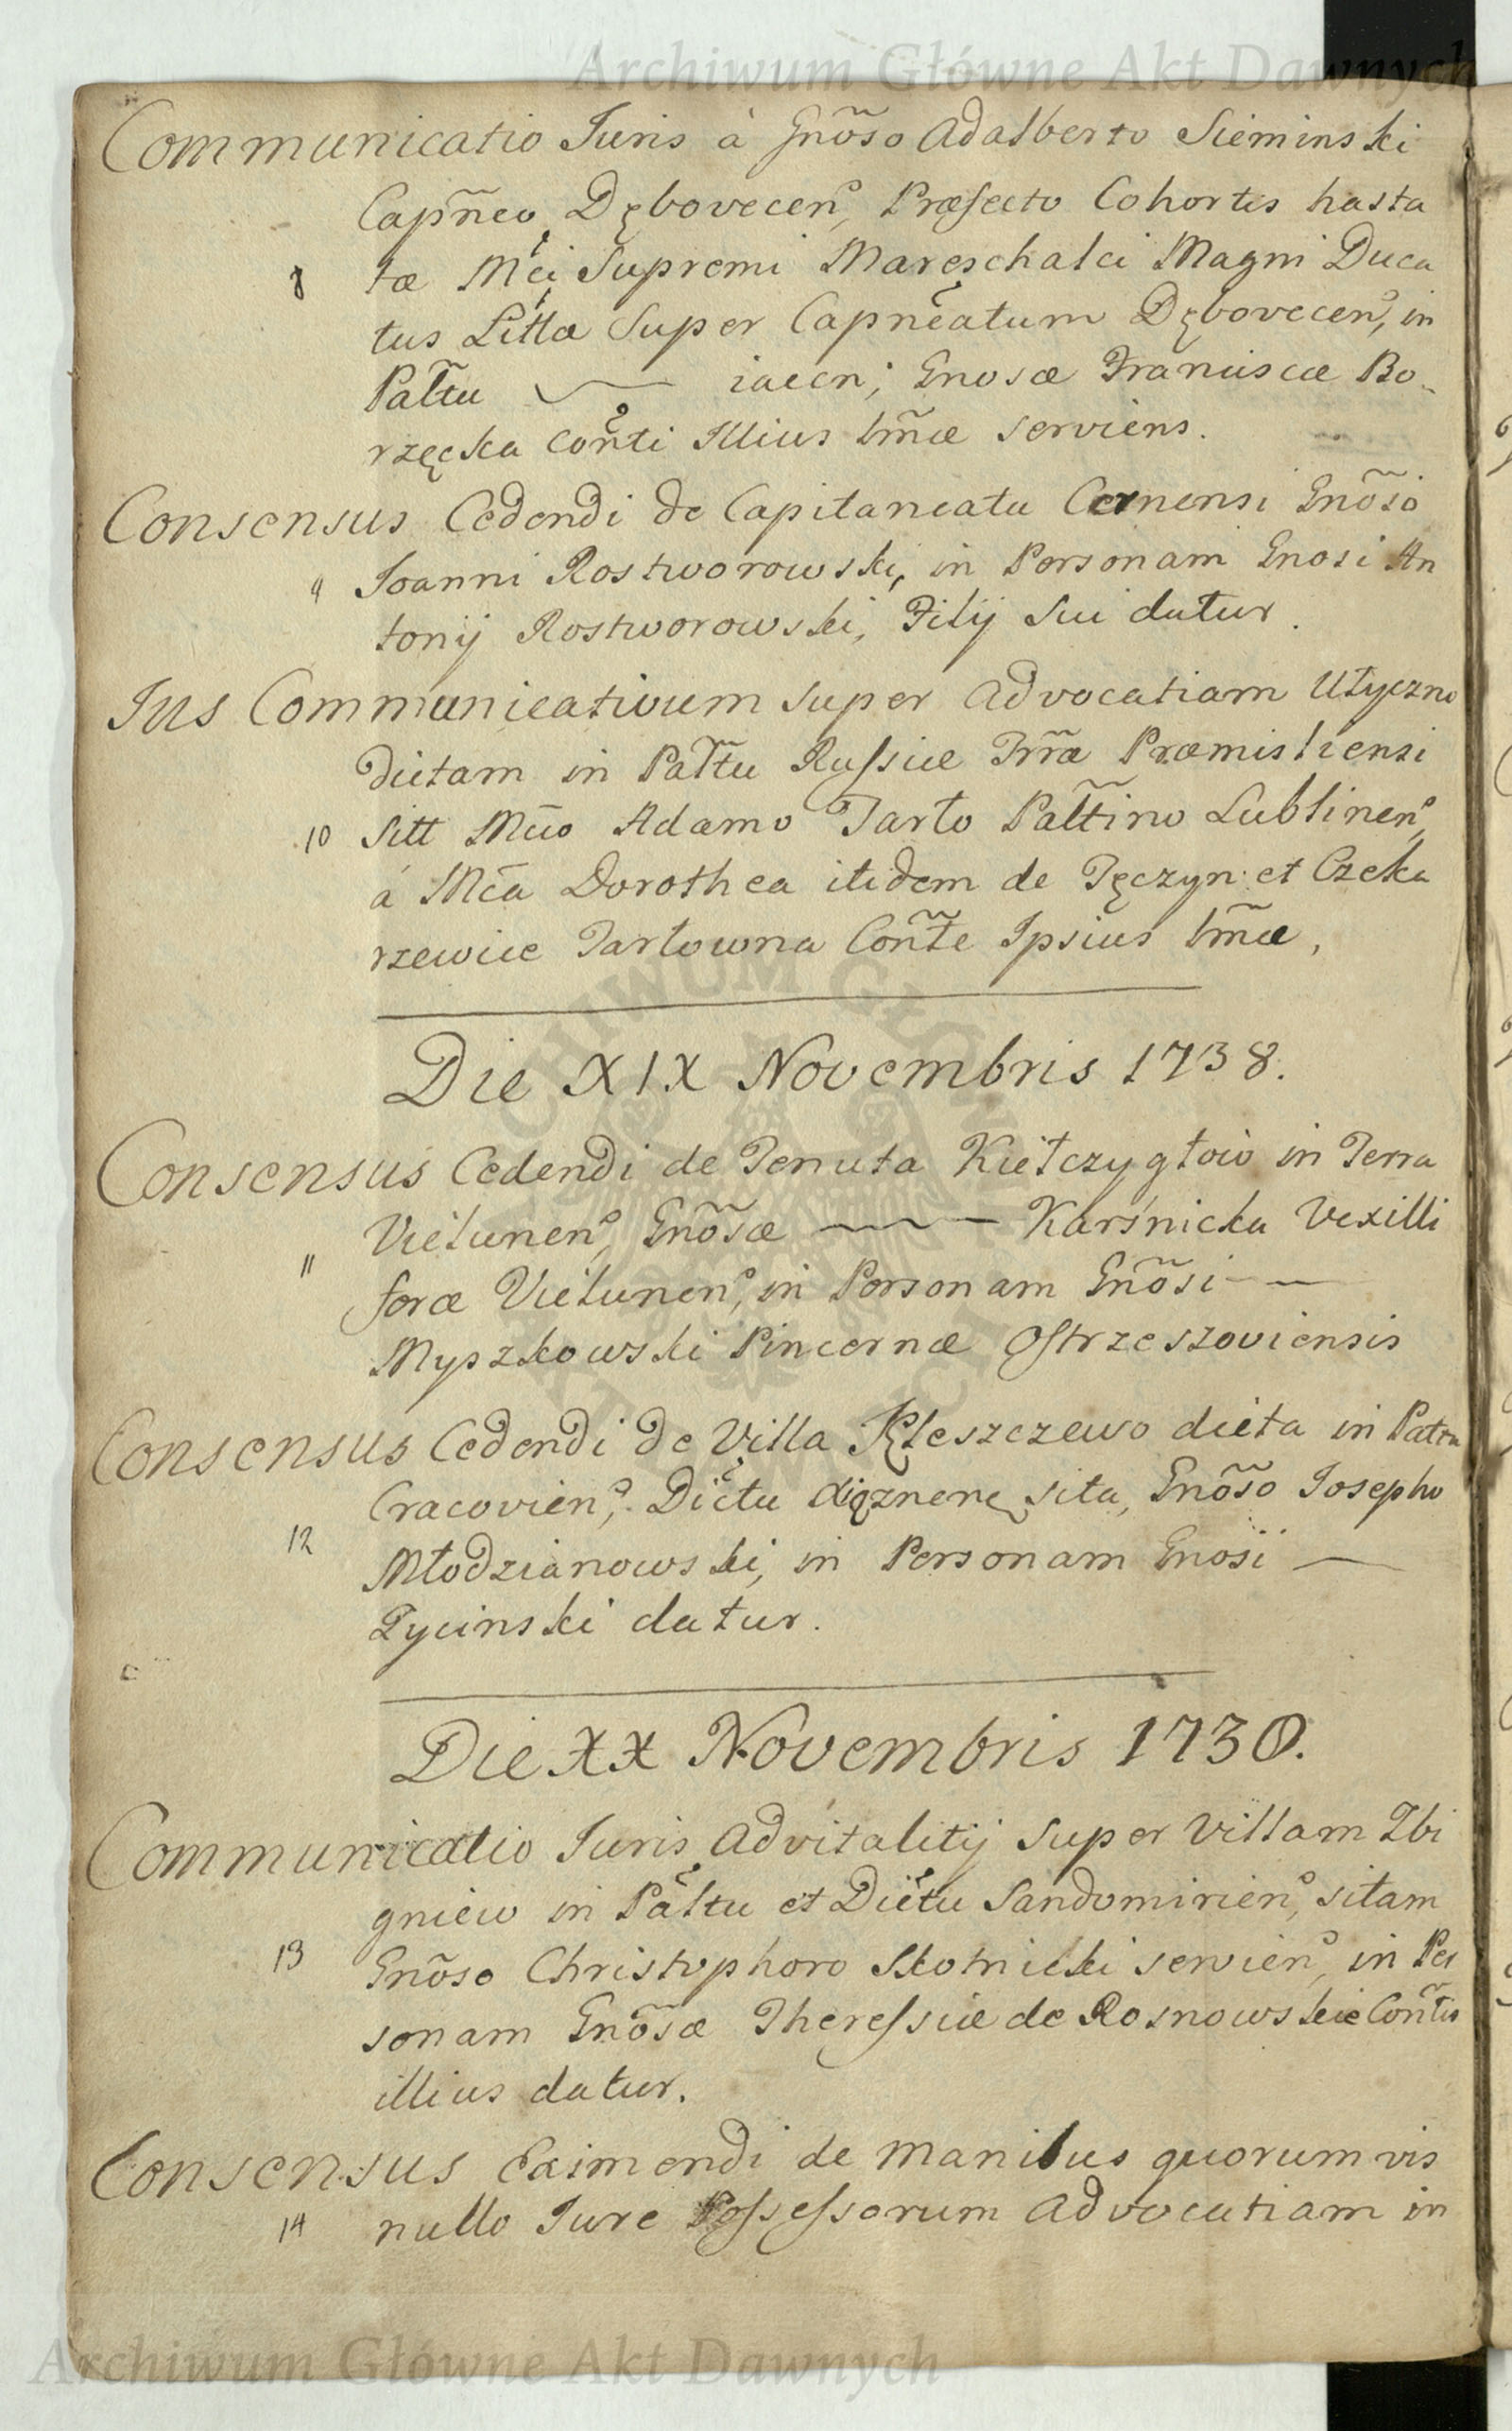 Archiwum Główne Akt Dawnych
Communicatio Juris à Gnõso Adalberto Sieminski
Capñeo Dębovecen, Præfecto Cohortis hasta
8 tæ Mci Supremi Mareschalci Magni Duca
tus Litta Super Capneatum Dębovecen, in
Paltu iacen; Gnosæ Franciscæ Bo-
rzęcka Conti Illius lmæ serviens.
Consensus Cedendi de Capitaneatu Cernensi Gnõso
9 Joanni Rostworowski, in Personam Gnosi An
tonij Rostworowski, Filij Sui datur.
Jus Communicativum super Advocatiam Utyczno
dictam in Paltu Russiæ Trræ Præmisliensi
10 sitt Mco Adamo Tarło Paltino Lublinen,
á Mca Dorothea itidem de Tęczyn et Czeka
rzewice Tarłowna Conte Ipsius lmæ,
Die XIX Novembris 1738.
Consensus Cedendi de Tenuta Kiełczygłow in Terra
Vielunen, Gnõsæ Karsnicka Vexilli
11 feræ Vielunen, in Personam Gnõsi
Myszkowski Pincernæ Ostrzeszoviensis
Consensus Cedendi de Villa Kleszczewo dicta in Paltu
Cracovien, Dictu sita, Gnõso Josepho
12 Młodzianowski, in Personam Gnosi
Tycinski datur.
Die XX Novembris 1738.
Communicatio Juris Advitalitij super Villam Zbi
gniew in Paltu et Dictu Sandomirien, sitam
13 Gnõso Christophoro Skotnicki servien, in Per
sonam Gnõsæ Theressiæ de Rosnowskie Contis
illius datur.
Consensus Eximendi de manibus quorumvis
14 nullo Jure Possessorum Advocatiam in
Archiwum Główne Akt Dawnych